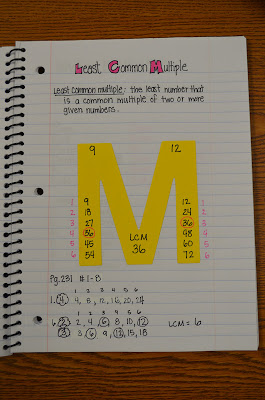 Least Common Multiple
Least common multiple: the least number that
is a common multiple of two or more
given numbers.
9 12
1 9 12 1
2 18 24 2
3 27 36 3
4 36 48 4
5 45 60 5
6 54 72 6
LCM
36
Pg. 231 #1-8
1 2 3 4 5 6
1. 4, 8, 12, 16, 20, 24
1 2 3 4 5 6
6. 2 2, 4, 6, 8, 10, 12 LCM = 6
3 3, 6, 9, 12, 15, 18